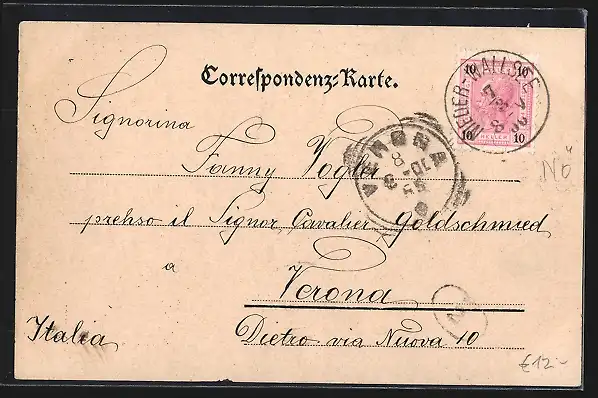 Correspondenz-Karte.
Signorina
Fanny Vogler
presso il Signor Cavalier Goldschmied
a
Verona
Italia
Dietro via Nuova 10
NIEDER-WALLSEE
10 10
HELLER
10 10
VERONA
NÖ
€12.-